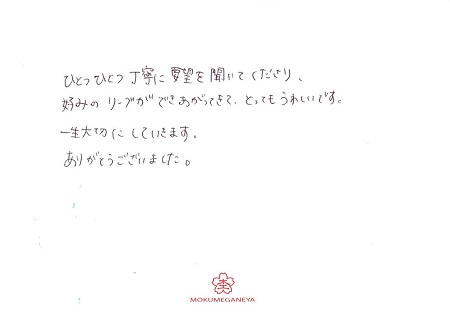 ひとつひとつ丁寧に要望を聞いてくださり、
好みのリーブができあがってきて、とってもうれしいです。
一生大切にしていきます。
ありがとうございました。
MOKUMEGANEYA